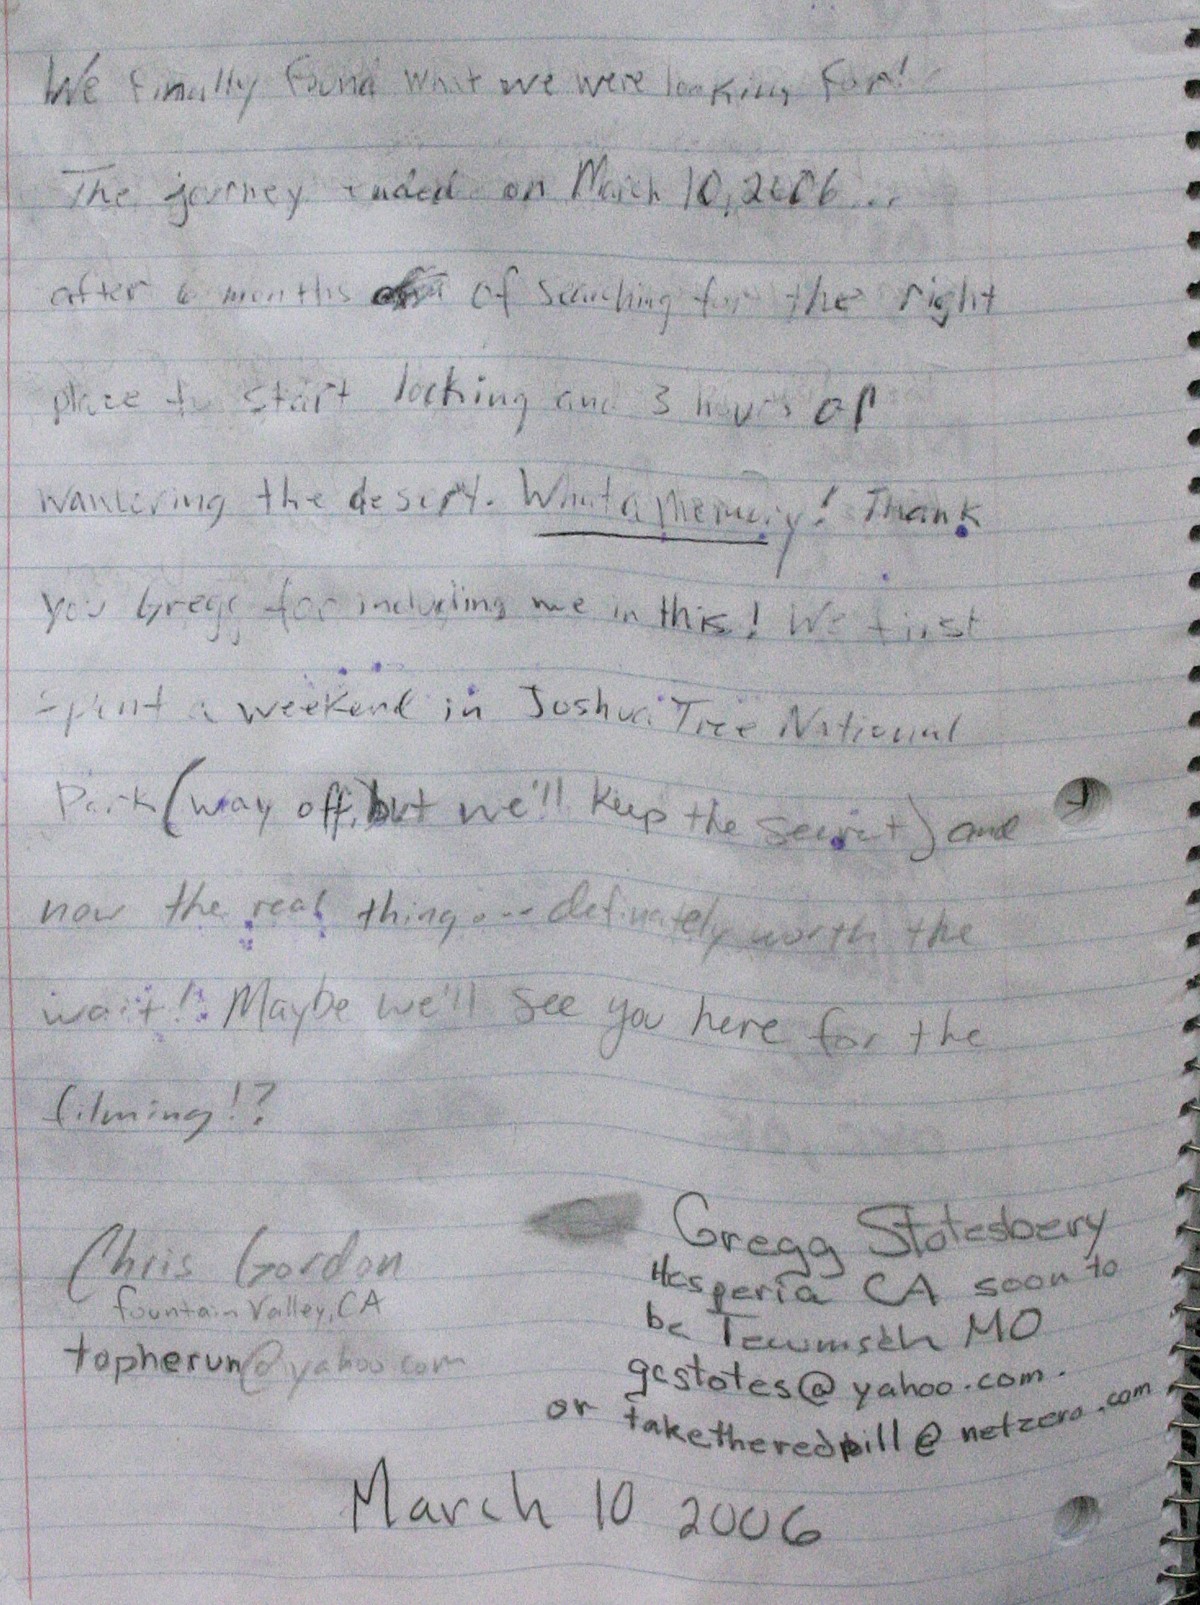 We finally found what we were looking for!
The journey ended on March 10, 2006...
after 6 months of searching for the right
place to start looking and 3 hours of
wandering the desert. What a Memory! Thank
you Gregg for including me in this! We first
spent a weekend in Joshua Tree National
Park (way off, but we'll keep the secret) and
now the real thing... definately worth the
wait! Maybe we'll see you here for the
filming!?
Chris Gordon
fountain Valley, CA
topherun@yahoo.com
Gregg Statesbery
Hesperia CA soon to
be Tecumseh MO
gcstates@yahoo.com.
or taketheredpill@netzero.com
March 10 2006